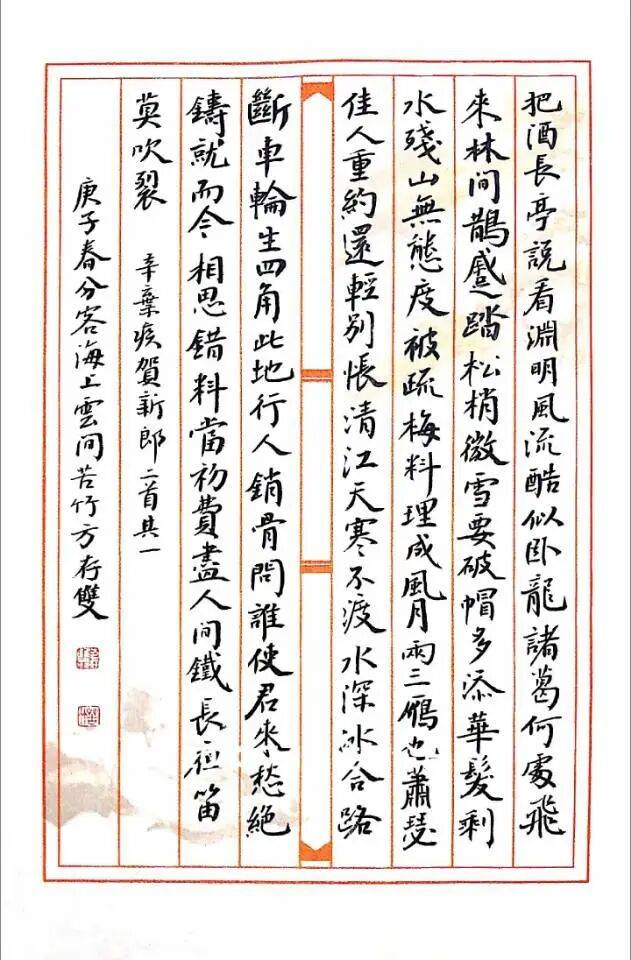 把酒長亭說看淵明風流酷似卧龍諸葛何處飛
來林間鵲蹙踏松梢微雪要破帽多添華髮剩
水殘山無態度被疏梅料理成風月兩三鴈也蕭瑟
佳人重約還輕別悵清江天寒不渡水深冰合路
斷車輪生四角此地行人銷骨問誰使君來愁絕
鑄就而今相思錯料當初費盡人間鐵長夜笛
莫吹裂
辛棄疾賀新郎二首其一
庚子春分客海上雲间苦竹方存雙